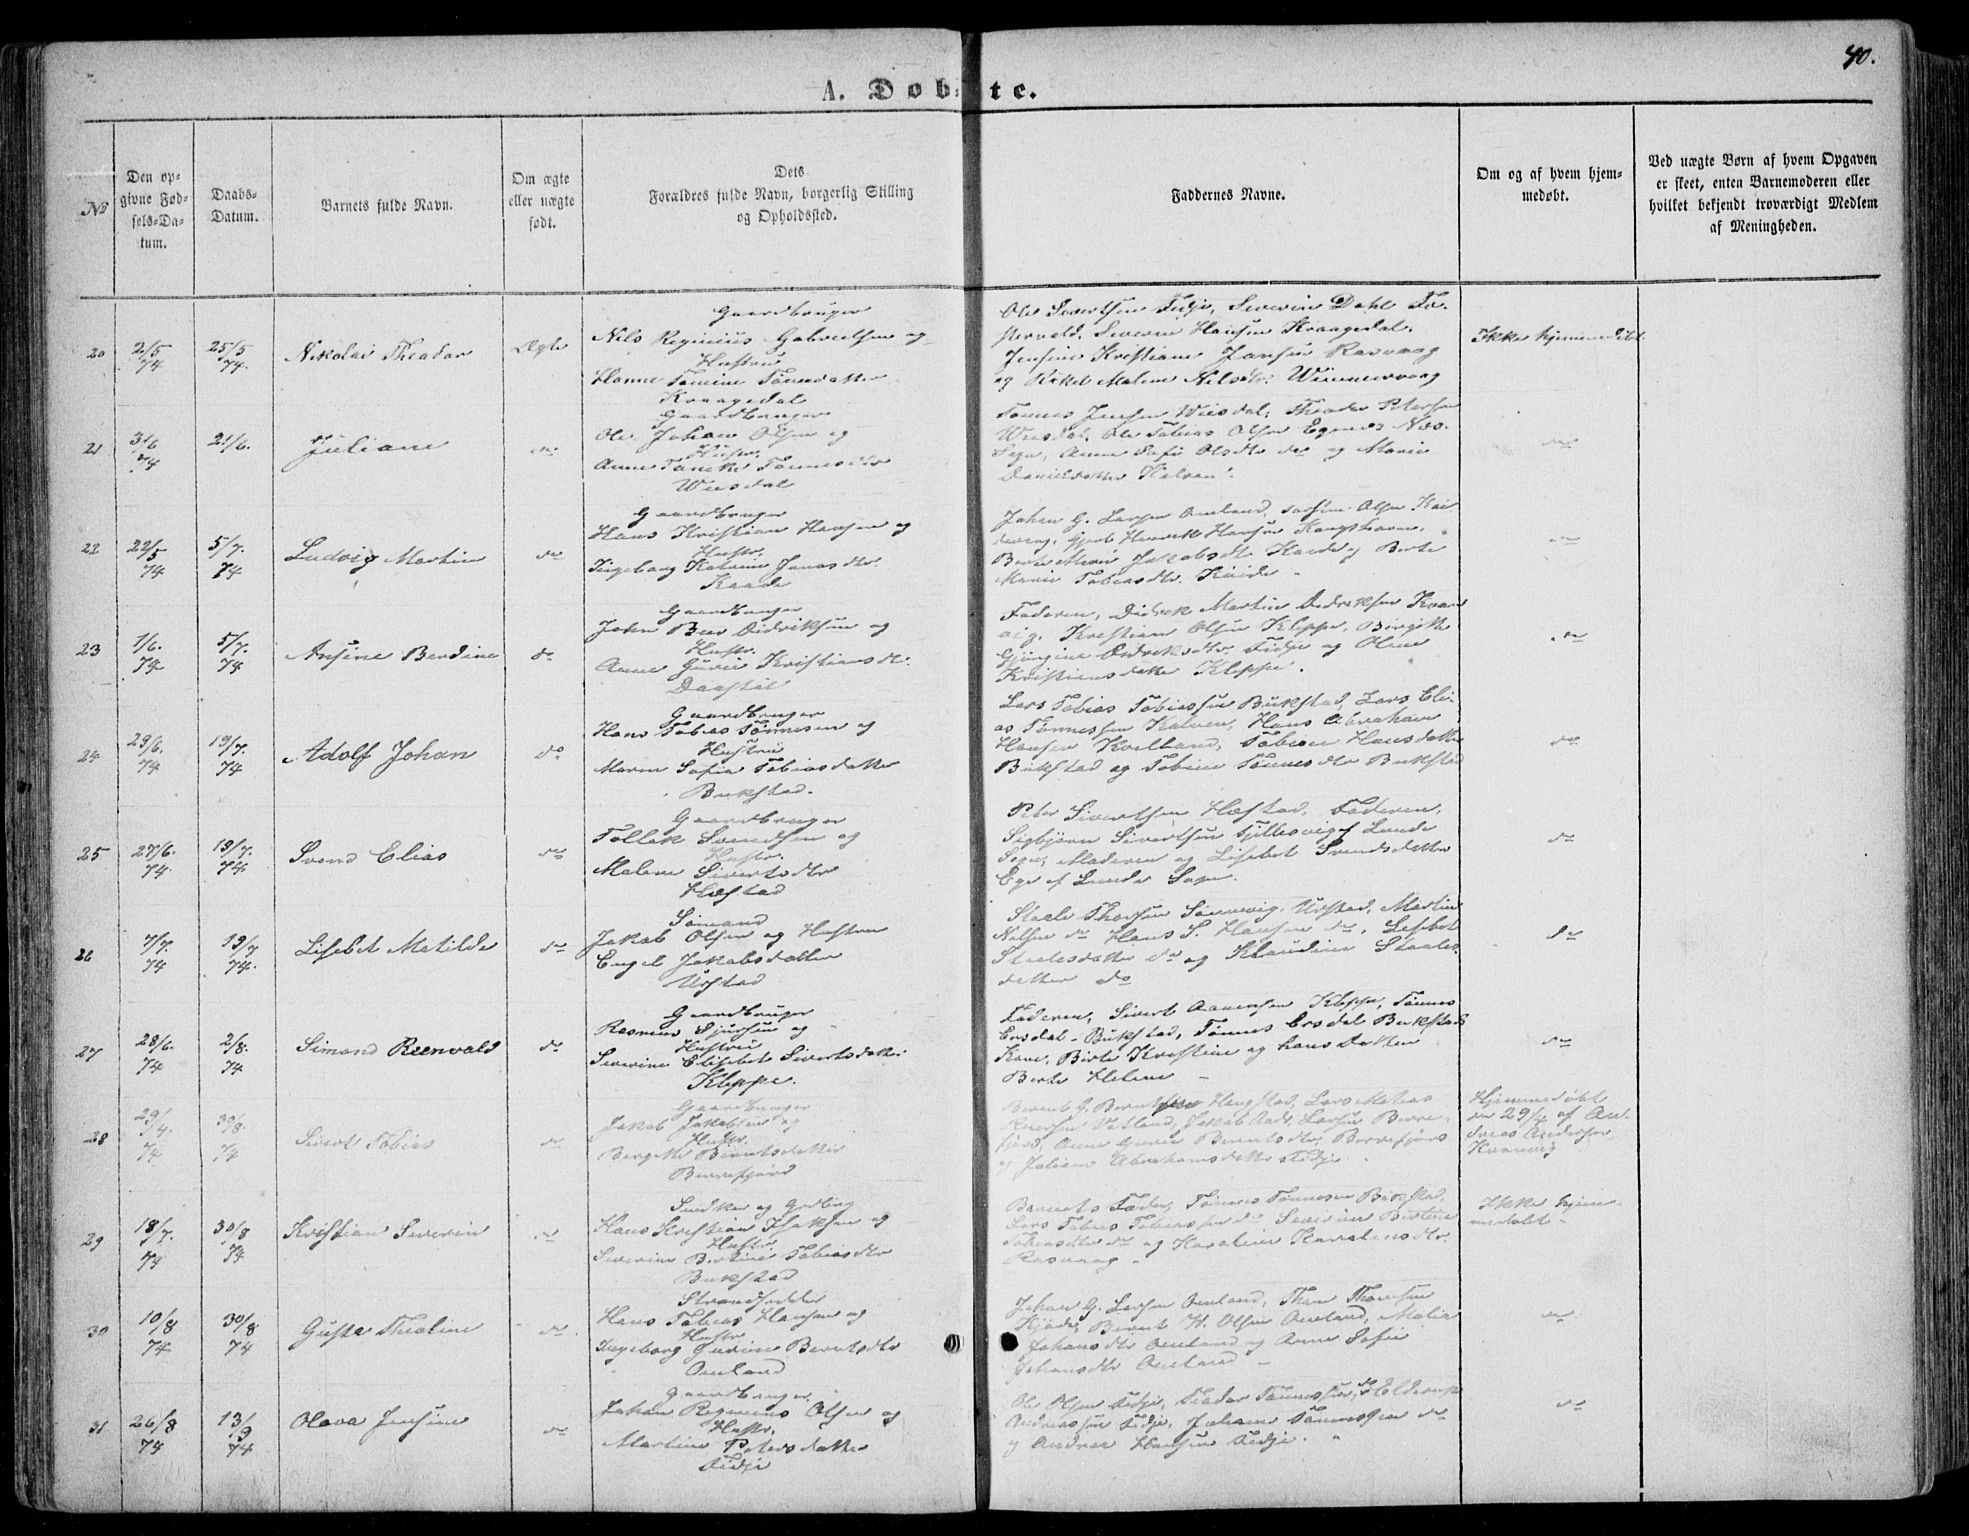 40.
A. Døbte.
No
Den opgivne Fødsels-Datum.
Daabs-Datum.
Barnets fulde Navn.
Om ægte eller uægte født.
Dets Forældres fulde Navn, borgerlig Stilling og Opholdssted.
Faddernes Navne.
Om og af hvem hjemmedøbt.
Ved uægte Børn af hvem Opgaven er skeet, enten Barnemoderen eller hvilket bekjendt troværdigt Medlem af Meningheden.
20
2/5 74
25/5 74.
Nikolai Theodor
Ægte
Gaardbruger
Nils Reginius Gabrielsen og
Hustru
Hanne Tomine Tønnesdatter
Kraagedal
Ole Sivertsen Fidje, Severin Dahl
Severin Hansen Kraagedal,
Jensine Kristiane Jansen Rasvaag
og Rakel Malene Nilsdtr.
Ikke hjemmedøbt
21
3/6 74
21/6.
Juliane
do
Gaardbruger
Ole Johan Olsen og
Hustr.
Anne Tønnesdtr
Tønnes Jensen Theodor Petersen
Ole Tobias Olsen Egenes Næs
Sogn, Anne Sofie Olsdtr do og Marie
Danielsdatter Kalven.
do
22
22/5 74
5/7. 74
Ludvig Martin
do
Gaardbruger
Hans Kristian Hansen og
Hustr.
Ingeborg Katrine Jonasdtr.
Kaade
Johan G. Larsen Omland, Olsen
Henrik Hansen Kongshavn,
Berte Marie Jakobsdtr Kaade og Berte
Marie Tobiasdtr. Kaade
do
23
1/6. 74
5/7. 74
Ansine Berdine
do
Gaardbruger
John Beer Didriksen og
Hustr.
Anne Gurie Kristiansdtr.
Daastøl
Faderen, Didrik Martin Didriksen
Kristian Olsen Kleppe, Birgitte
Gjørgine Didriksdtr. Fidje og Oline
Kristiansdatter Kleppe.
do
24
29/6. 74
19/7. 74
Adolf Johan
do
Gaardbruger
Hans Tobias Tønnesen og
Hustru
Maren Sofie Tobiasdatter
Bukstad.
Lars Tobias Tobiassen Bukstad, Lars Eli-
as Tønnessen Kalven, Hans Abraham
Hansen Kvelland, Tobine Hansdatter
Bukstad og Tobine Tønnesdtr Bukstad
do
25
27/6. 74.
19/7. 74
Svend Elias
do
Gaardbruger
Tollak Svendsen og
Hustr.
Malene Sivertsdtr
Hæstad
Peter Sivertsen Hæstad, Faderen,
Sigbjørn Sivertsen af Lunde
Sogn, Moderen og Lisebet Svendsdatter
Ege af Lunde Sogn.
do
26
7/7. 74
19/7 74.
Lisebet Matilde
do
Sømand
Jakob Olsen og Hustru
Engel Jakobsdatter
Urstad
Staale Thorsen Urstad, Martin
Nilsen do Hans S. Hansen do, Lisebet
Staalesdatter do og Klaudine Staales-
datter do
do
27
28/6. 74
2/8. 74
Simond Reenvald
do
Gaardbruger
Rasmus Sjursen og
Hustru
Severine Elisebet Sivertsdatter
Kleppe.
Faderen, Sivert Aanensen Kleppe, Tønnes
Ersdal Bukstad, Tønnes Ersdal Bukstads
Kone, Birte Kristine og hans Datter
Berte Helene
do
28
29/4. 74
30/8. 74
Sivert Tobias
do
Gaardbruger
Jakob Jakobsen og
Hustr.
Bergitte Berntsdatter
Berrefjord
Bernt G. Berntsen Haugstad, Lars Mathias
Vetland, Jakob Larsen Berre-
fjord, Anne Gurine Berntsdtr. Berrefjord
og Juliane Abrahamsdatter Fidje
Hjemmedøbt
29/4 af An-
dreas Andersen
29
18/7. 74
30/8 74
Kristian Severin
do
Smidker og
Hans Kristian Isaksen og
Hustr.
Severine Bertine Tobiasdtr
Bukstad
Barnets Fader, Tønnes Tønnesen Bukstad,
Lars Tobias Tobiassen do Severine Bertine
Tobiasdtr do og Karoline Karstensdtr.
Rasvaag
Ikke hjem-
medøbt
30
10/8 74
30/8 74
Gusta Theoline
do.
Strandsidder
Hans Tobias Hansen og
Hustr
Ingeborg Gurine Berntsdtr
Omland
Johan G. Larsen Omland, Thore Thoresen
Bernt H. Olsen Omland, Malie
Johansdtr Omland og Anne Sofie
Johansdtr Omland
do
31
26/8 74
13/9 74
Olava Jensine
do
Gaardbruger
Johan Reginius Olsen og
Hustr.
Martine Petersdatter
Fidje
Ole Olsen Fidje, Theodor Tønnessen do
Andreassen Fidje, Juliane Tønnessen do
og Andrea Hansen Fidje.
do